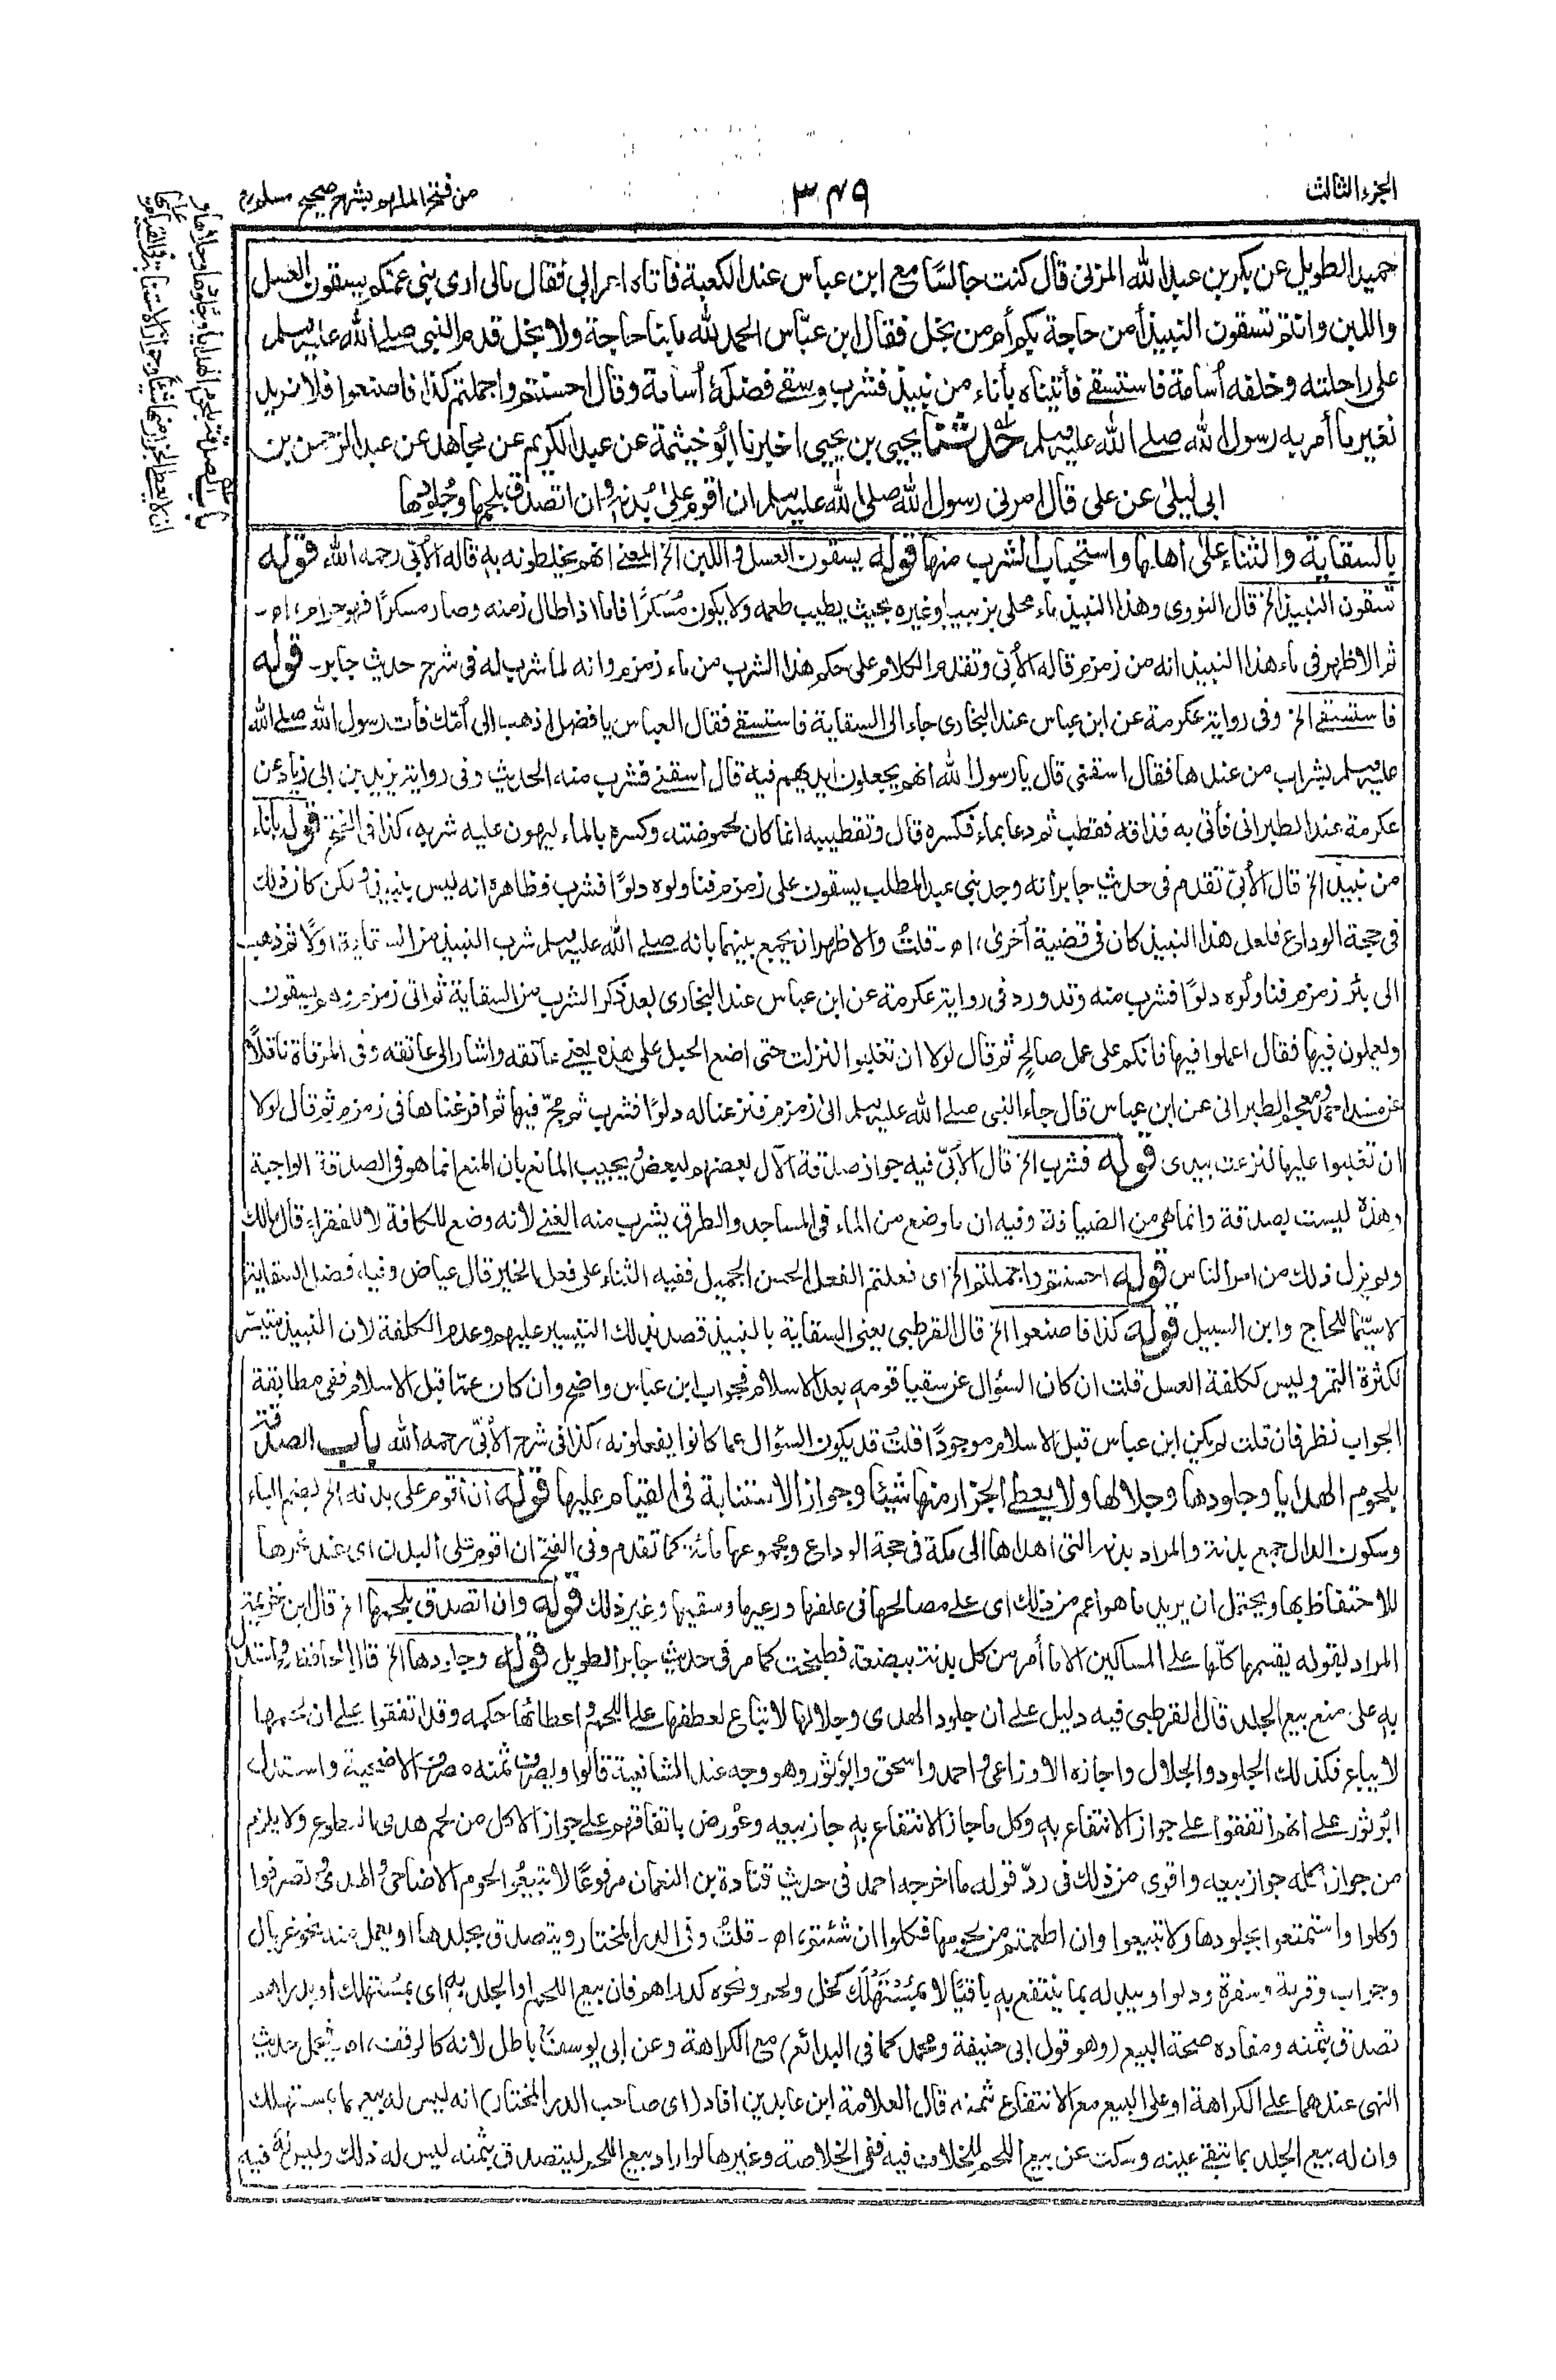 الجزء الثالث
٣٤٩
من فتح الملهم بشرح صحيح مسلم
باب الصدقة بلحوم الهدايا وجلودها وجلالها و
ان لا يعطى الجزار منها شيئا وجواز الاستنابة فى القيام عليها
حميد الطويل عن بكر بن عبد الله المزنى قال كنت جالسًا مع ابن عباس عند الكعبة فأتاه اعرابى فقال مالى ارى بنى عمكم يسقون العسل
واللبن وانتم تسقون النبيذ أمن حاجة بكم أم من بخل فقال ابن عبّاس الحمد لله ما بنا حاجة ولا بخل قدم النبى صلى الله عليه وسلم
على راحلته وخلفه أسامة فاستسقى فأتيناه بأناء من نبيذ فشرب وسقى فضله أسامة وقال احسنتم واجملتم كذا فاصنعوا فلا نريد
نغير ما أمر به رسول الله صلى الله عليه وسلم حدثنا يحيى بن يحيى اخبرنا ابو خيثمة عن عبد الكريم عن مجاهد عن عبد الرحمن بن
ابى ليلى عن على قال امرنى رسول الله صلى الله عليه وسلم ان اقوم على بُدنه وان اتصدق بلحمها وجُلودها
بالسقاية والثناء على اهلها واستحباب الشرب منها قوله يسقون العسل واللبن الخ المعنى انهم يخلطونه به قاله الأبّى رحمه الله قوله
تسقون النبيذ الخ قال النووى وهذا النبيذ ماء محلى بزبيب او غيره بحيث يطيب طعمه ولا يكون مُسكرًا فاما اذا طال زمنه وصار مسكرًا فهو حرام، اه ـ
ثم الاظهر فى ماء هذا النبيذ انه من زمزم قاله الأبّى وتقدم الكلام على حكم هذا الشرب من ماء زمزم وانه لما شرب له فى شرح حديث جابر ـ قوله
فاستسقى الخ وفى رواية عكرمة عن ابن عباس عند البخارى جاء الى السقاية فاستسقى فقال العباس يا فضل اذهب الى أمّك فأت رسول الله صلى الله
عليه وسلم بشراب من عندها فقال اسقنى قال يا رسول الله انهم يجعلون ايديهم فيه قال اسقنى فشرب منه، الحديث وفى رواية يزيد بن ابى زياد عن
عكرمة عند الطبرانى فأتى به فذاقه فقطب ثم دعا بماء فكسره قال وتقطيبه انما كان لحموضته، وكسره بالماء ليهون عليه شربه، كذا فى الفتح قوله بأناء
من نبيذ الخ قال الأبّى تقدم فى حديث جابر انه وجد بنى عبد المطلب يسقون على زمزم فناولوه دلوًا فشرب فظاهره انه ليس بنبيذ ولكن كان ذلك
فى حجة الوداع فلعل هذا النبيذ كان فى قضية أخرى، اه ـ قلتُ والاظهر ان يجمع بينهما بانه صلى الله عليه وسلم شرب النبيذ من السقاية اولًا ثم ذهب
الى بئر زمزم فناولوه دلوًا فشرب منه وقد ورد فى رواية عكرمة عن ابن عباس عند البخارى بعد ذكر الشرب من السقاية ثم اتى زمزم وهم يسقون
ويعملون فيها فقال اعملوا فيها فانكم على عمل صالح ثم قال لولا ان تغلبوا لنزلت حتى اضع الحبل على هذه يعنى عاتقه واشار الى عاتقه وفى المرقاة ناقلًا
عن مسند احمد ومعجم الطبرانى عن ابن عباس قال جاء النبى صلى الله عليه وسلم الى زمزم فنزعنا له دلوًا فشرب ثم مجّ فيها ثم افرغناها فى زمزم ثم قال لولا
ان تغلبوا عليها لنزعت بيدى قوله فشرب الخ قال الأبّى فيه جواز صدقة الآل بعضهم لبعض ويجيب المانع بان المنع انما هو فى الصدقة الواجبة
وهذه ليست بصدقة وانما هى من الضيافة وفيه ان ما وضع من الماء فى المساجد والطرق يشرب منه الغنى لانه وضع للكافة لا للفقراء، قال مالك
ولم يزل ذلك من امر الناس قوله احسنتم واجملتم الخ اى فعلتم الفعل الحسن الجميل ففيه الثناء على فعل الخير قال عياض وفيه، فضل السقاية
لا سيّما للحاج وابن السبيل قوله كذا فاصنعوا الخ قال القرطبى يعنى السقاية بالنبيذ قصد بذلك التيسير عليهم وعدم الكلفة لان النبيذ متيسّر
لكثرة التمر وليس ككلفة العسل قلت ان كان السؤال عن سقيا قومه بعد الاسلام فجواب ابن عباس واضح وان كان عما قبل الاسلام ففى مطابقة
الجواب نظر فان قلت لم يكن ابن عباس قبل الاسلام موجودًا قلتُ قد يكون السؤال عما كانوا يفعلونه، كذا فى شرح الأبّى رحمه الله باب الصدقة
بلحوم الهدايا وجلودها وجلالها ولا يعطى الجزار منها شيئا وجواز الاستنابة فى القيام عليها قوله ان اقوم على بدنه الخ بضم الباء
وسكون الدال جمع بدنة والمراد بدنه التى اهداها الى مكة فى حجة الوداع ومجموعها مائة كما تقدم وفى الفتح ان اقوم على البدن اى عند نحرها
للاحتفاظ بها ويحتمل ان يريد ما هو اعم من ذلك اى على مصالحها فى علفها ورعيها وسقيها وغير ذلك قوله وان اتصدق بلحمها الخ قال ابن خزيمة
المراد بقوله يقسمها كلها على المساكين الا ما أمر من كل بدنة ببضعة، فطبخت كما مر فى حديث جابر الطويل قوله وجلودها الخ قال الحافظ واستدل
به على منع بيع الجلد قال القرطبى فيه دليل على ان جلود الهدى وجلالها لا تباع لعطفها على اللحم واعطائها حكمه وقد اتفقوا على ان لحمها
لا يباع فكذلك الجلود والجلال واجازه الاوزاعى واحمد واسحق وابو ثور وهو وجه عند الشافعية قالوا ويصرف ثمنه مصرف الاضحية واستدل
ابو ثور على انهم اتفقوا على جواز الانتفاع به وكل ما جاز الانتفاع به جاز بيعه وعُورض باتفاقهم على جواز الاكل من لحم هدى التطوع ولا يلزم
من جواز اكله جواز بيعه واقوى من ذلك فى ردّ قوله ما اخرجه احمد فى حديث قتادة بن النعمان مرفوعًا لا تبيعوا لحوم الاضاحى والهدى وتصدقوا
وكلوا واستمتعوا بجلودها ولا تبيعوا وان اطعمتم من لحومها فكلوا ان شئتم، اه ـ قلتُ وفى الدر المختار ويتصدق بجلدها او يعمل منه نحو غربال
وجراب وقربة وسفرة ودلو او يبدله بما ينتفع به باقيًا لا بمُسْتَهْلَك كخل ولحم ونحوه كدراهم فان بيع اللحم او الجلد به اى بمستهلك أو بدراهم
تصدق بثمنه ومفاده صحة البيع (وهو قول ابى حنيفة ومحمد كما فى البدائع) مع الكراهة وعن ابى يوسف باطل لانه كالوقف، اه يحمل حديث
النهى عندهما على الكراهة او على البيع مع الانتفاع بثمنه، قال العلامة ابن عابدين افاد (اى صاحب الدر المختار) انه ليس له بيعهما بمستهلك
وان له بيع الجلد بما تبقى عينه وسكت عن بيع اللحم للخلاف فيه ففى الخلاصة وغيرها لو اراد بيع اللحم ليتصدق بثمنه، ليس له ذلك وليس له فيه